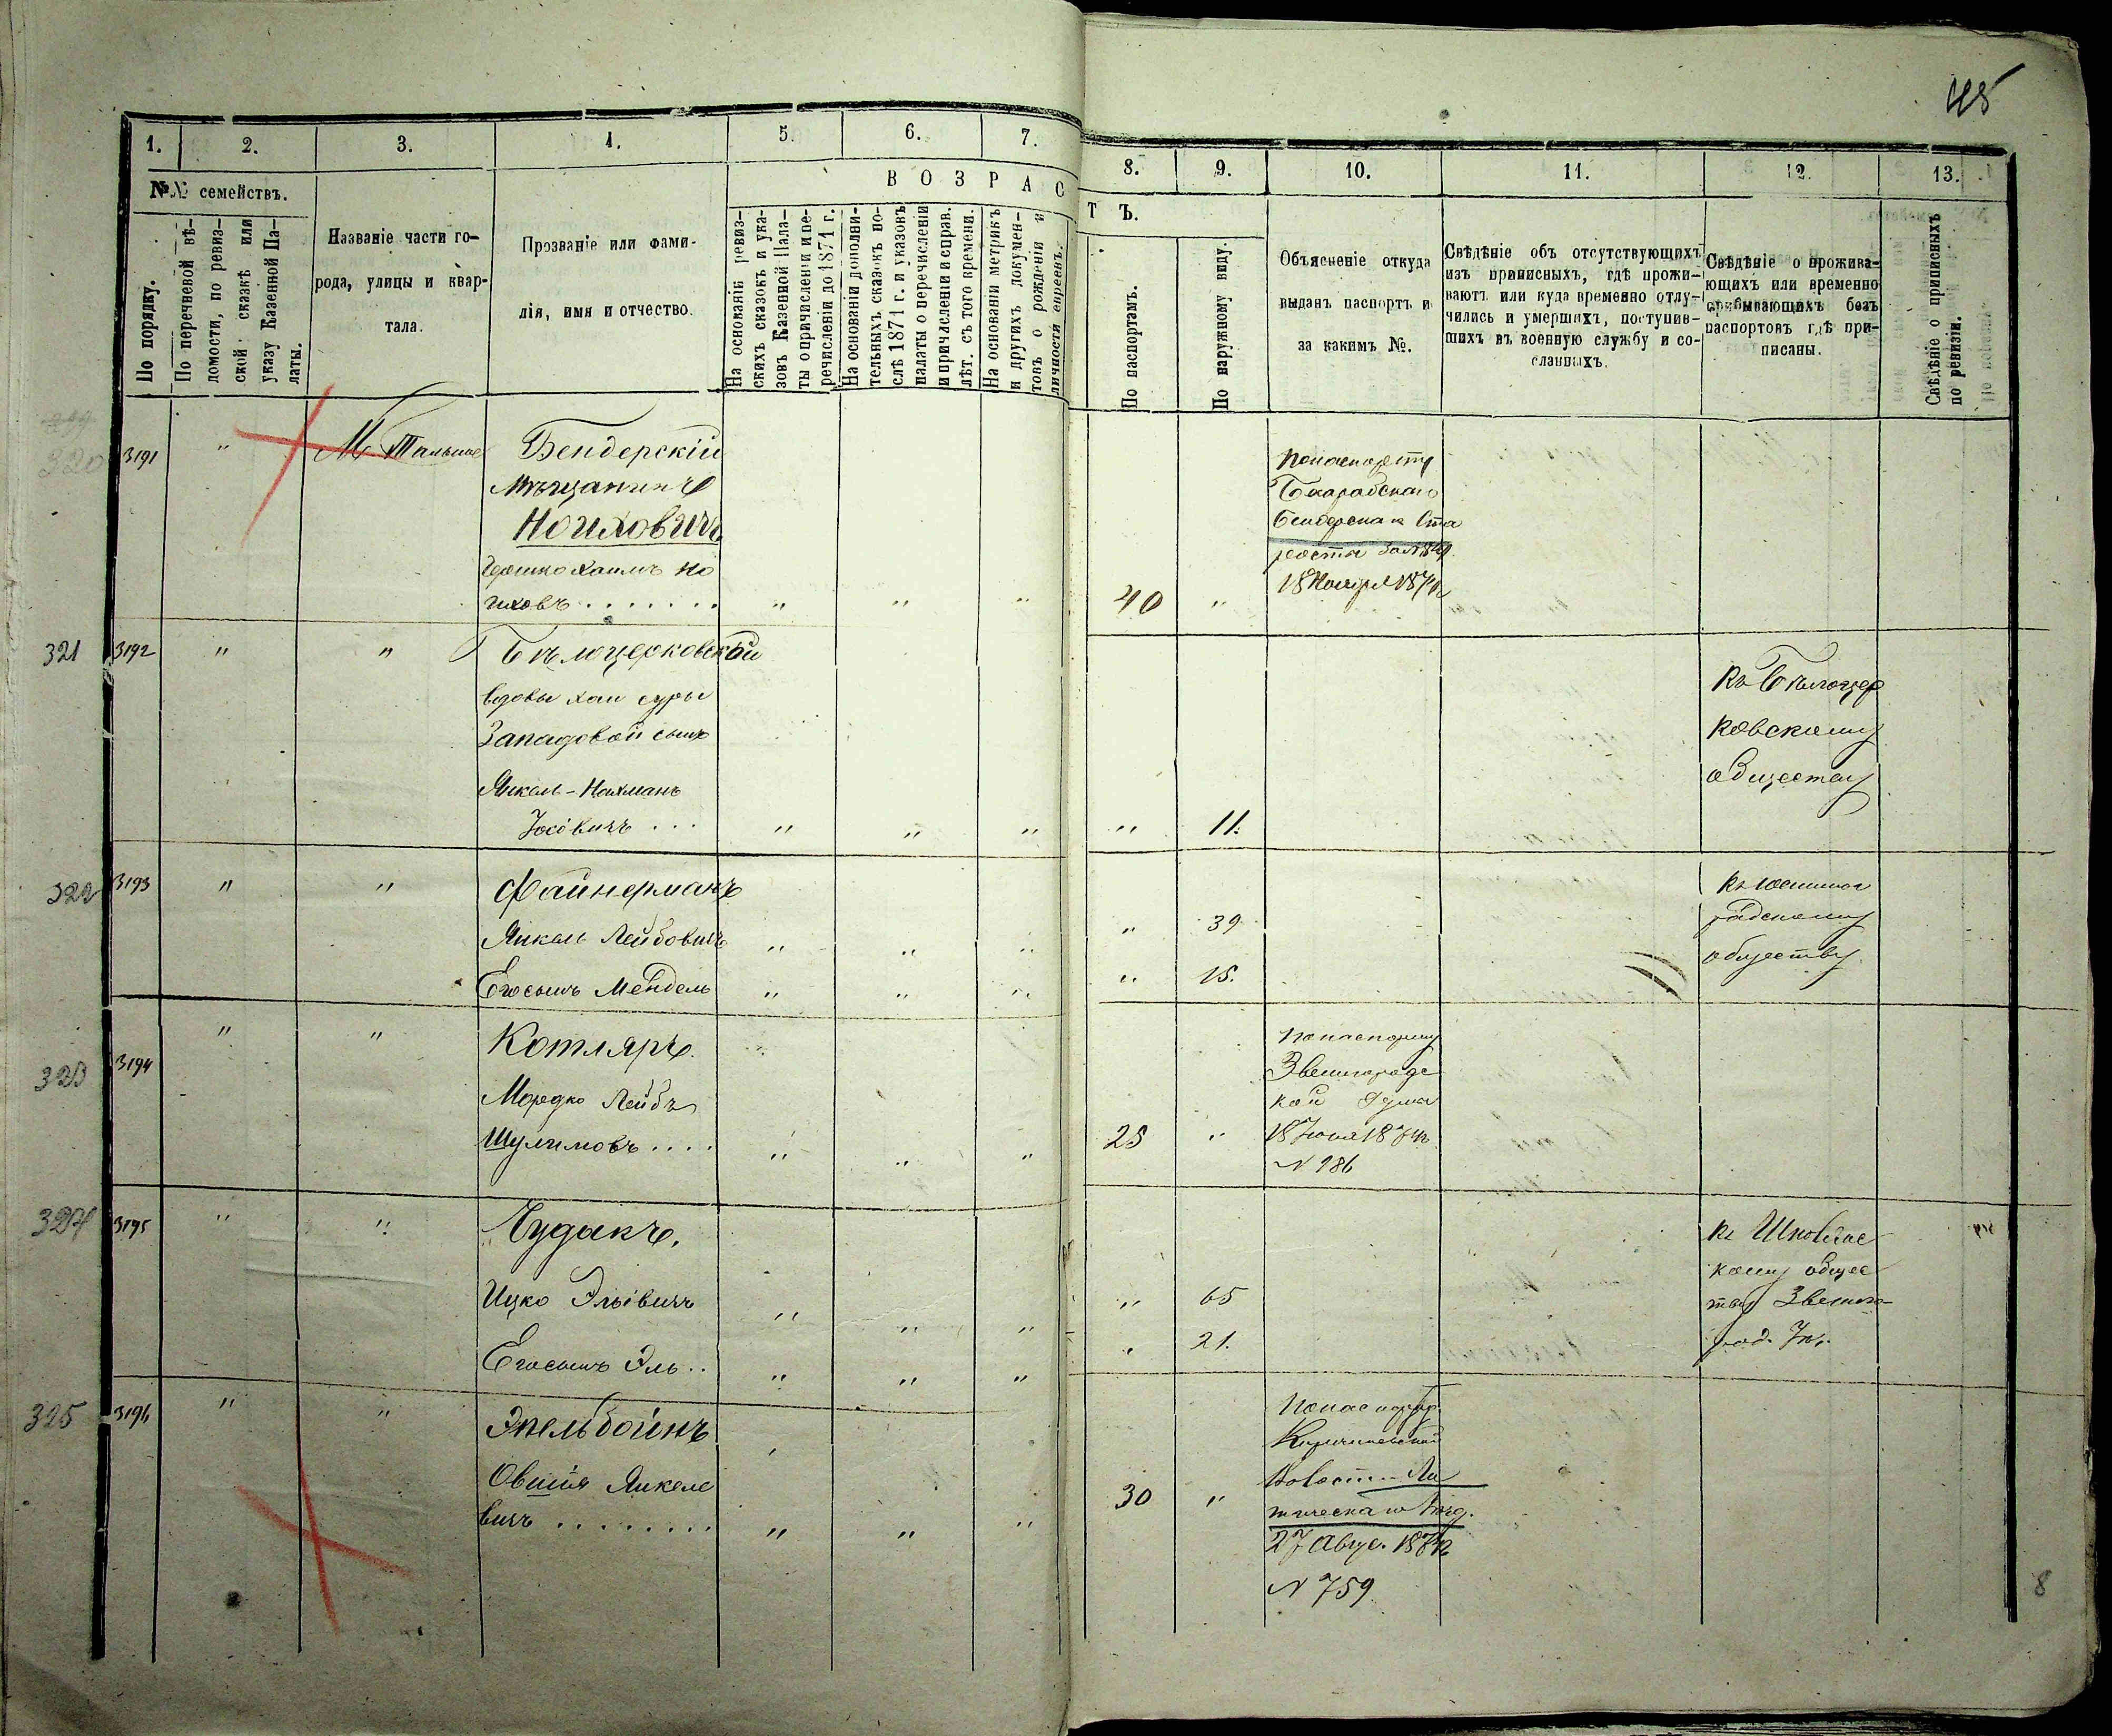 45
1. 2. 3. 4. 5. 6. 7. 8. 9. 10. 11. 12. 13.
№№ семействъ.
По порядку.
По перечневой вѣ-
домости, по ревиз-
ской сказкѣ или
указу Казенной Па-
латы.
Названіе части го-
рода, улицы и квар-
тала.
Прозваніе или фами-
лія, имя и отчество.
ВОЗРАСТЪ.
На основаніи ревиз-
скихъ сказокъ и ука-
зовъ Казенной Пала-
ты о причисленіи и пе-
речисленіи до 1871 г.
На основаніи дополни-
тельныхъ сказокъ по-
слѣ 1871 г. и указовъ
палаты о перечисленіи
и причисленіи и справ.
лѣт. съ того времени.
На основаніи метрикъ
и другихъ докумен-
товъ о рожденіи и
личности евреевъ.
По паспортамъ.
По наружному виду.
Объясненіе откуда
выданъ паспортъ и
за какимъ №.
Свѣдѣніе объ отсутствующихъ
изъ приписныхъ, гдѣ прожи-
ваютъ или куда временно отлу-
чились и умершихъ, поступив-
шихъ въ военную службу и со-
сланныхъ.
Свѣдѣніе о прожива-
ющихъ или временно
пребывающихъ безъ
паспортовъ гдѣ при-
писаны.
Свѣдѣніе о приписныхъ
по ревизіи.
320 3191 " М. Тальное Бендерскій
Мѣщанинъ
Ноиховичъ
Хаимъ Но
иховъ....... " " " 40 "
Попаспорту
Бендерскаго Ста
росты за №
18 Ноября
321 3192 " " Бѣлоцерковской
вдовы Хаи Суры
Западовой сынъ
Янкель-Нахманъ
Іосіовичъ... " " " " 11.
Къ Бѣлоцер
ковскому
обществу
322 3193 " " Файнерманъ
Янкель Лейбовичъ " " " " 39
Его сынъ Мендель " " " " 15.
радскому
обществу
323 3194 " " Котляръ.
Мордко Лейбъ
Шулимовъ.... " " " 25 "
Попаспорту
Звенигородс
кой Думы
18 Іюня
N 186
324 3195 " " Чудакъ.
Ицко Эльевичъ " " " " 65
Его сынъ Эль.. " " " " 21.
Къ
кому общес
тву Звениго-
род. Уѣ.
325 3196 " " Эпельбоймъ
Овшія Янкеле
вичъ........ " " " 30 "
27 Авгус.
N 759
8